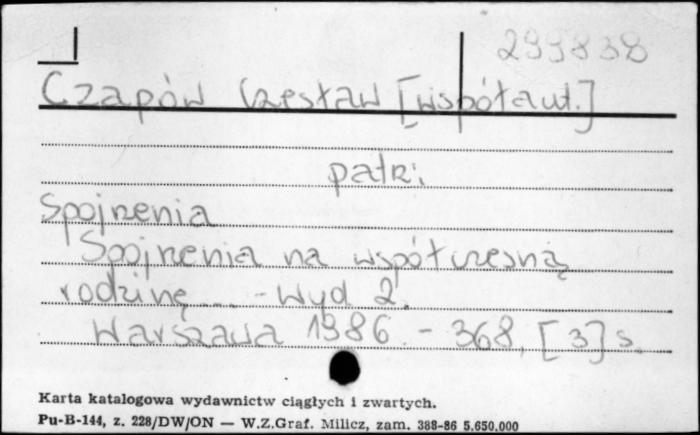 299838
Czapów Czesław [współaut.]
patrz:
Spojrzenia
Spojrzenia na współczesną
rodzinę... - Wyd 2.
Warszawa 1986. - 368, [3] s.
Karta katalogowa wydawnictw ciągłych i zwartych.
Pu-B-144, z. 228/DW/ON — W.Z.Graf. Milicz, zam. 388-86 5.650.000